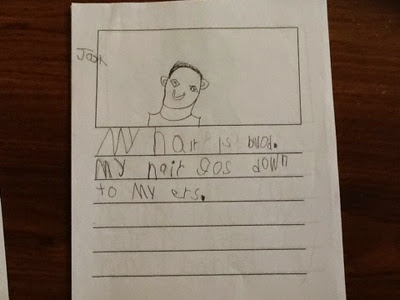 Jack
My hair is
My hair gos down
to My ers.